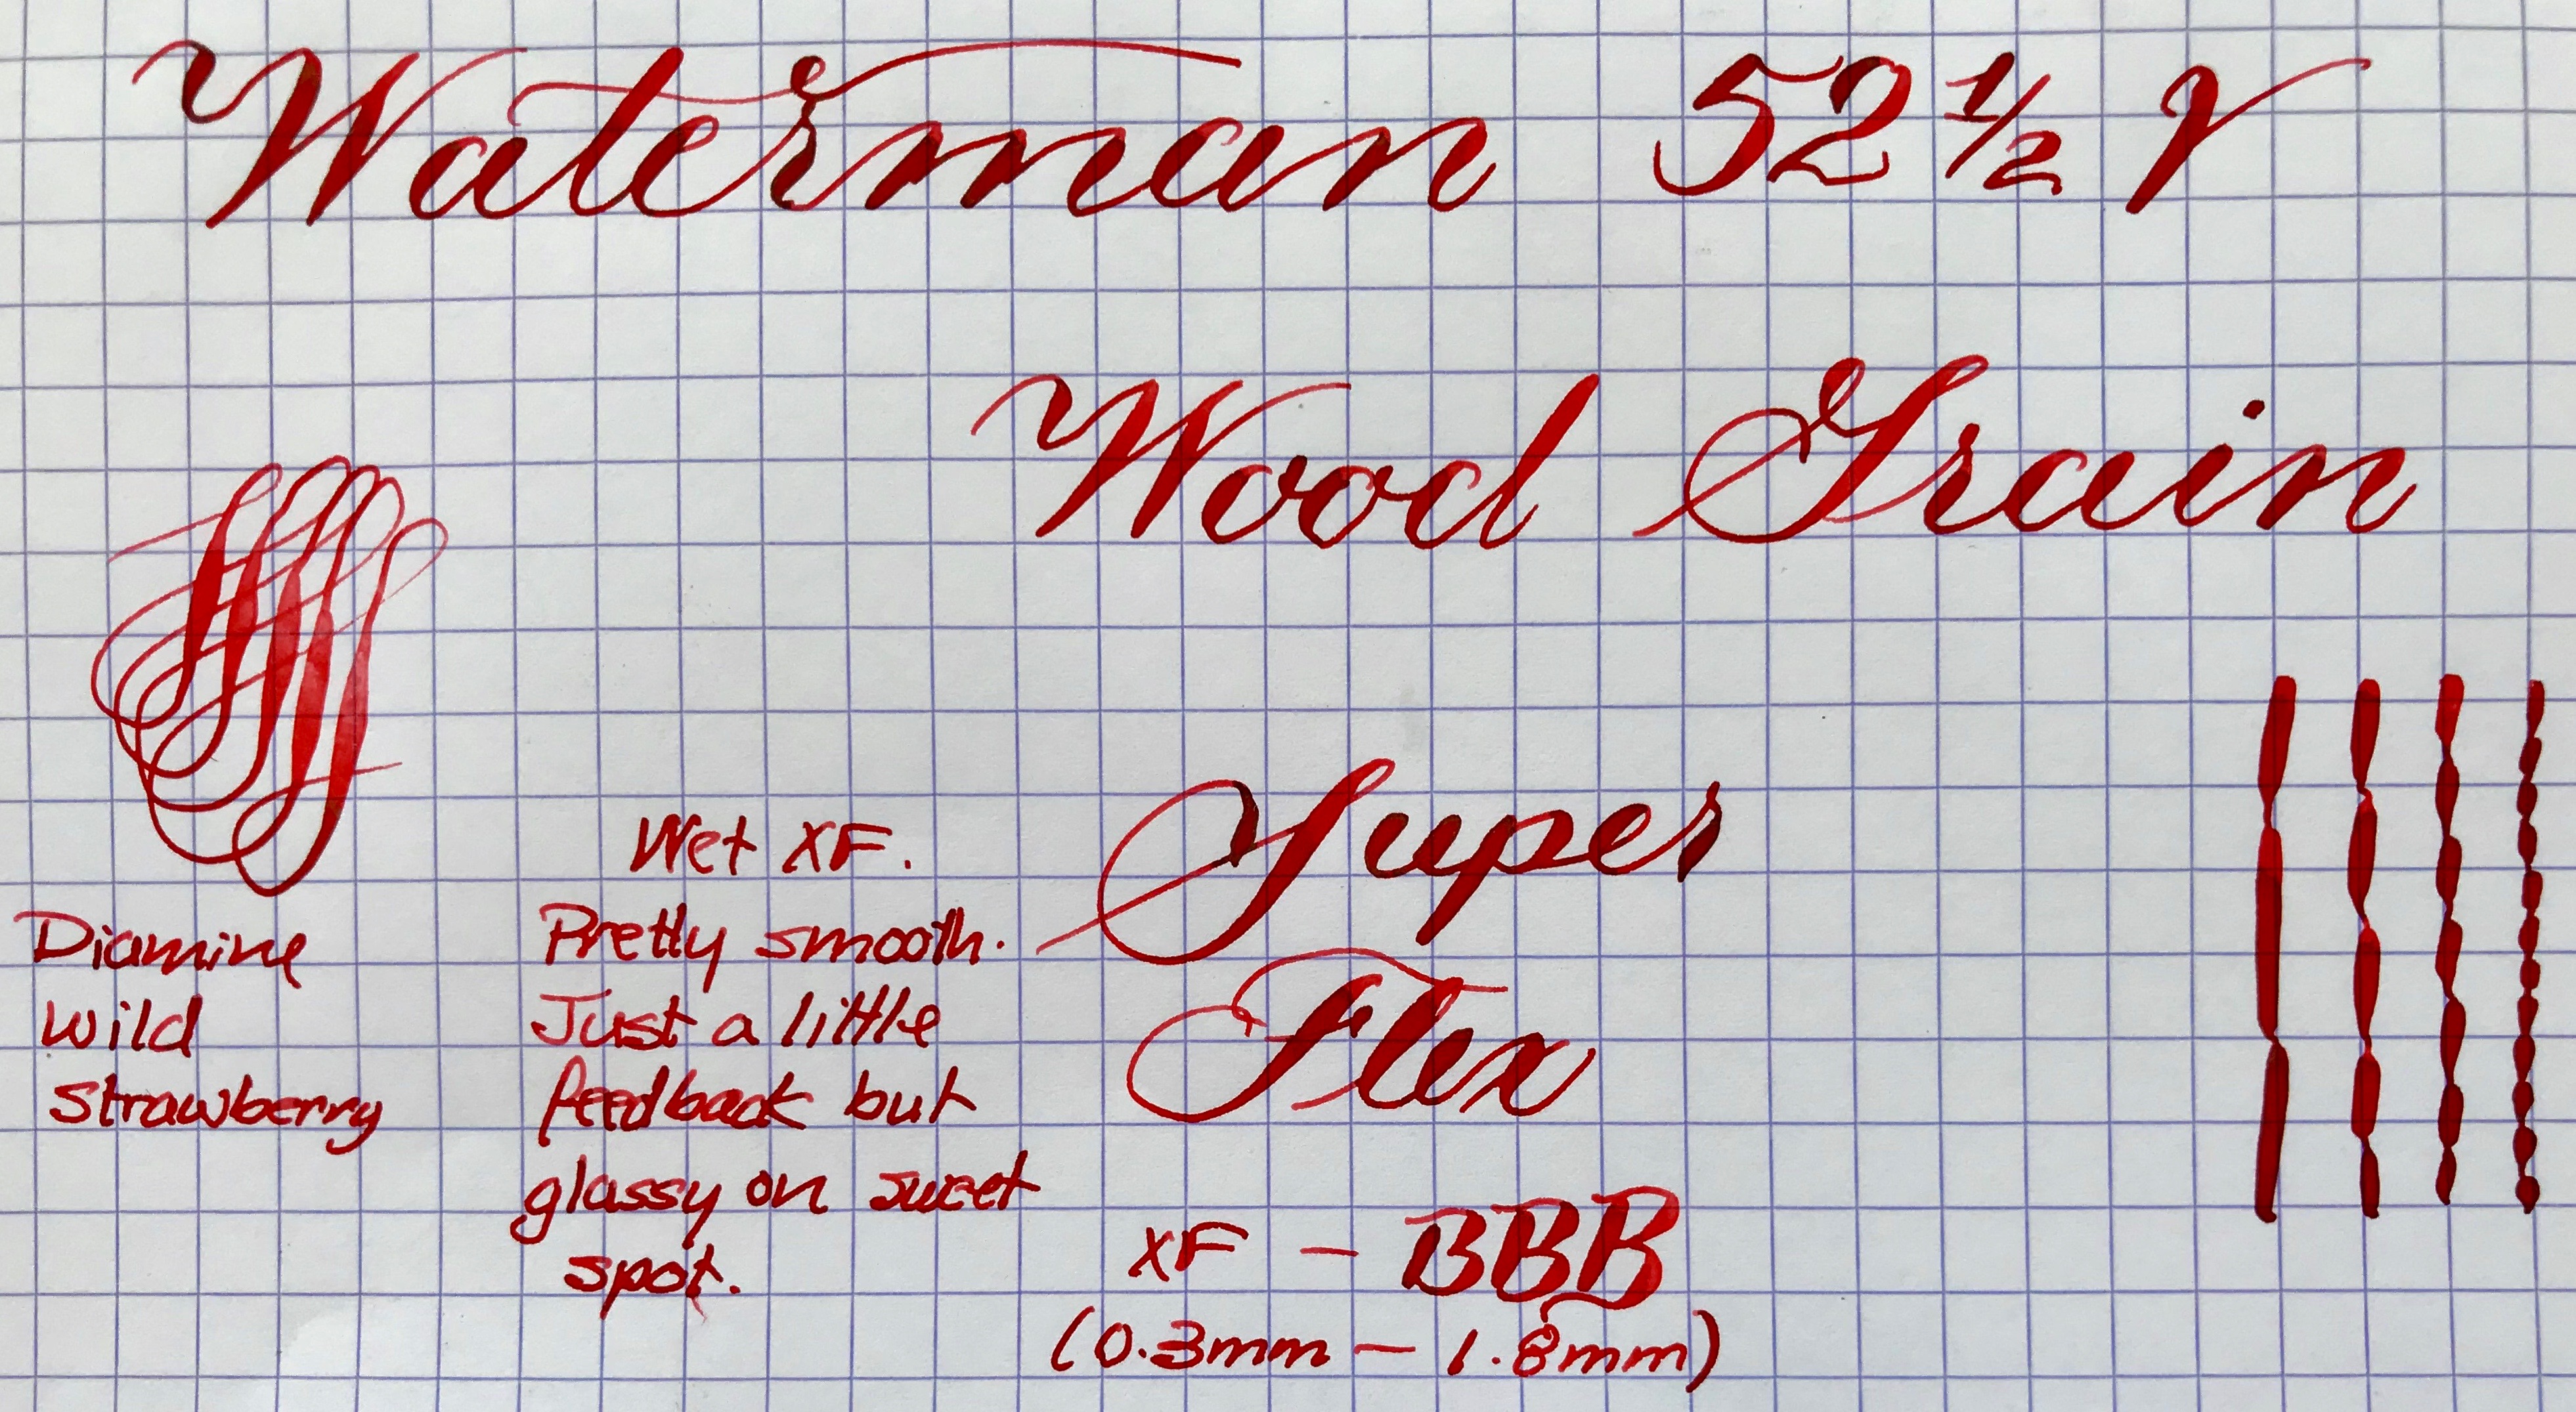 Waterman 52 1/2 V
Wood Grain
Diamine
Wild
Strawberry
Wet XF.
Pretty smooth.
Just a little
feedback but
glassy on sweet
spot.
Super
Flex
XF — BBB
(0.3mm — 1.8mm)